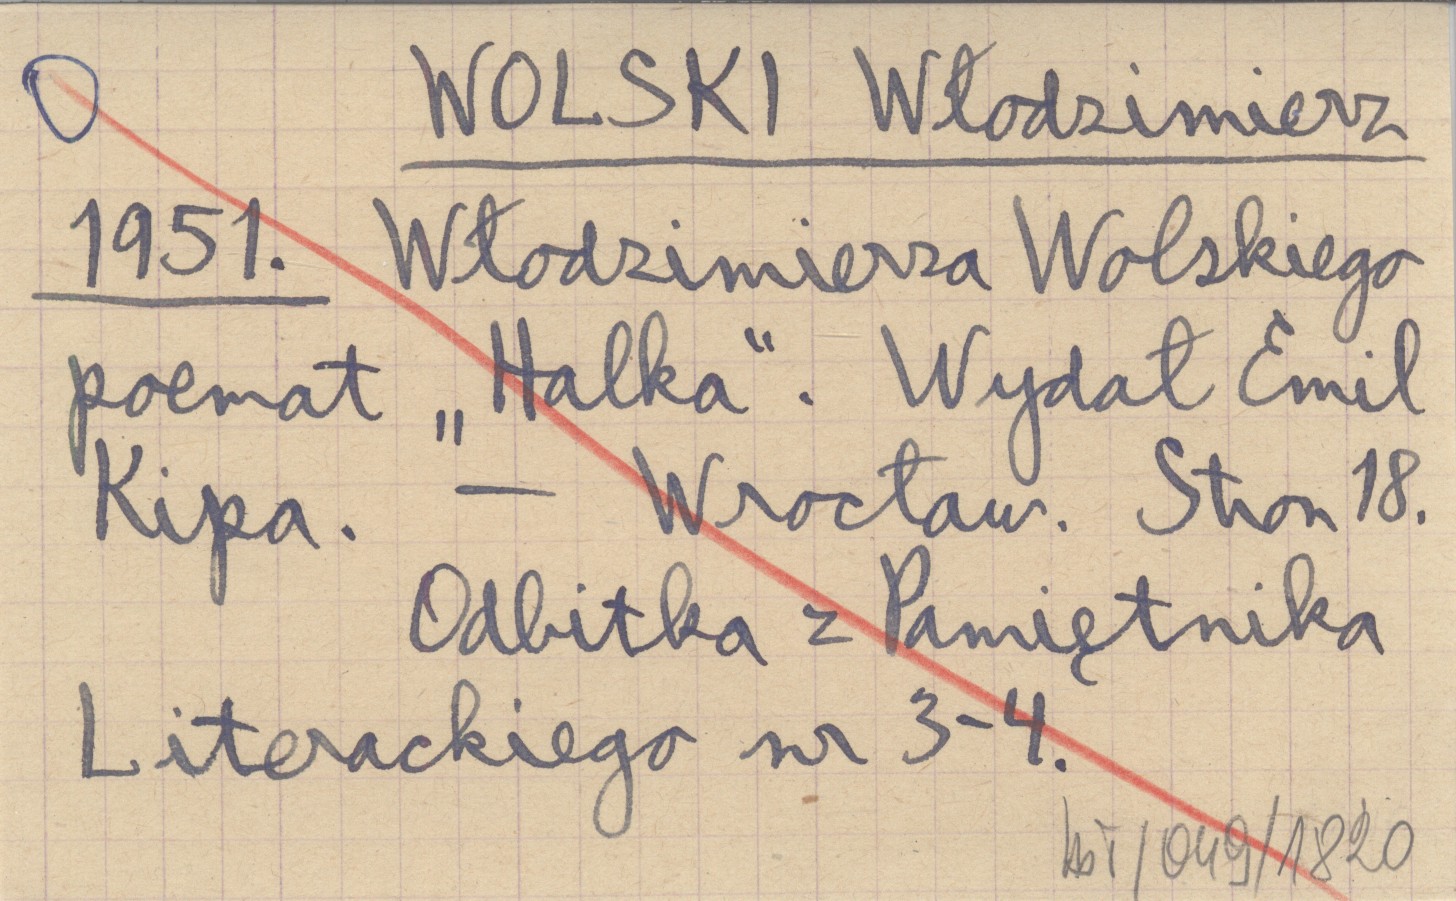 WOLSKI Włodzimierz
1951. Włodzimierza Wolskiego
poemat „Halka“. Wydał Emil
Kipa. — Wrocław. Stron 18.
Odbitka z Pamiętnika
Literackiego nr 3-4.
/049/1820